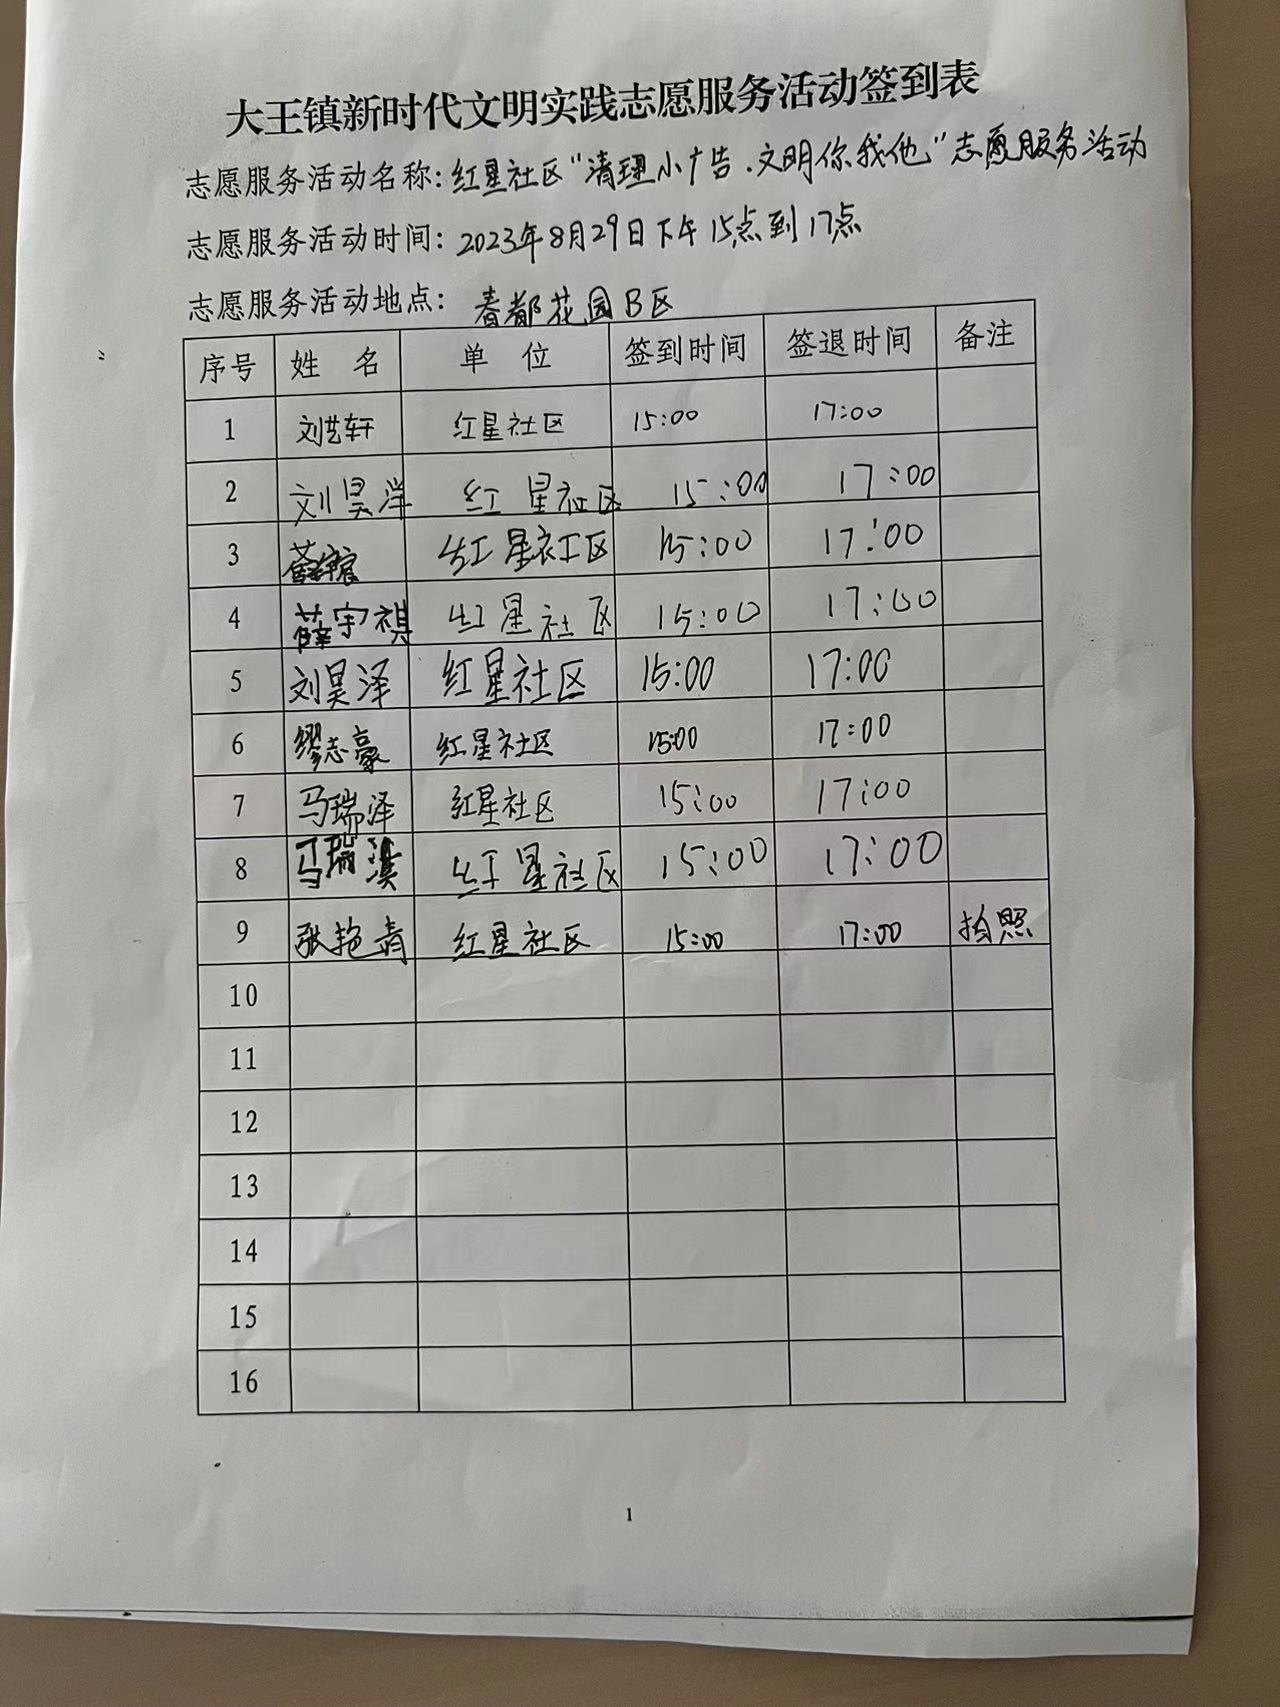 大王镇新时代文明实践志愿服务活动签到表
志愿服务活动名称:红星社区“清理小广告.文明你我他”志愿服务活动
志愿服务活动时间:2023年8月29日下午15点到17点
志愿服务活动地点:春都花园B区
序号 姓名 单位 签到时间 签退时间 备注
1 刘艺轩 红星社区 15:00 17:00
2 刘昊洋 红星社区 15:00 17:00
3 红星社区 15:00 17:00
4 薛宇祺 红星社区 15:00 17:00
5 刘昊泽 红星社区 15:00 17:00
6 缪志豪 红星社区 15:00 17:00
7 马瑞泽 红星社区 15:00 17:00
8 马瑞淇 红星社区 15:00 17:00
9 张艳青 红星社区 15:00 17:00 拍照
10
11
12
13
14
15
16
1